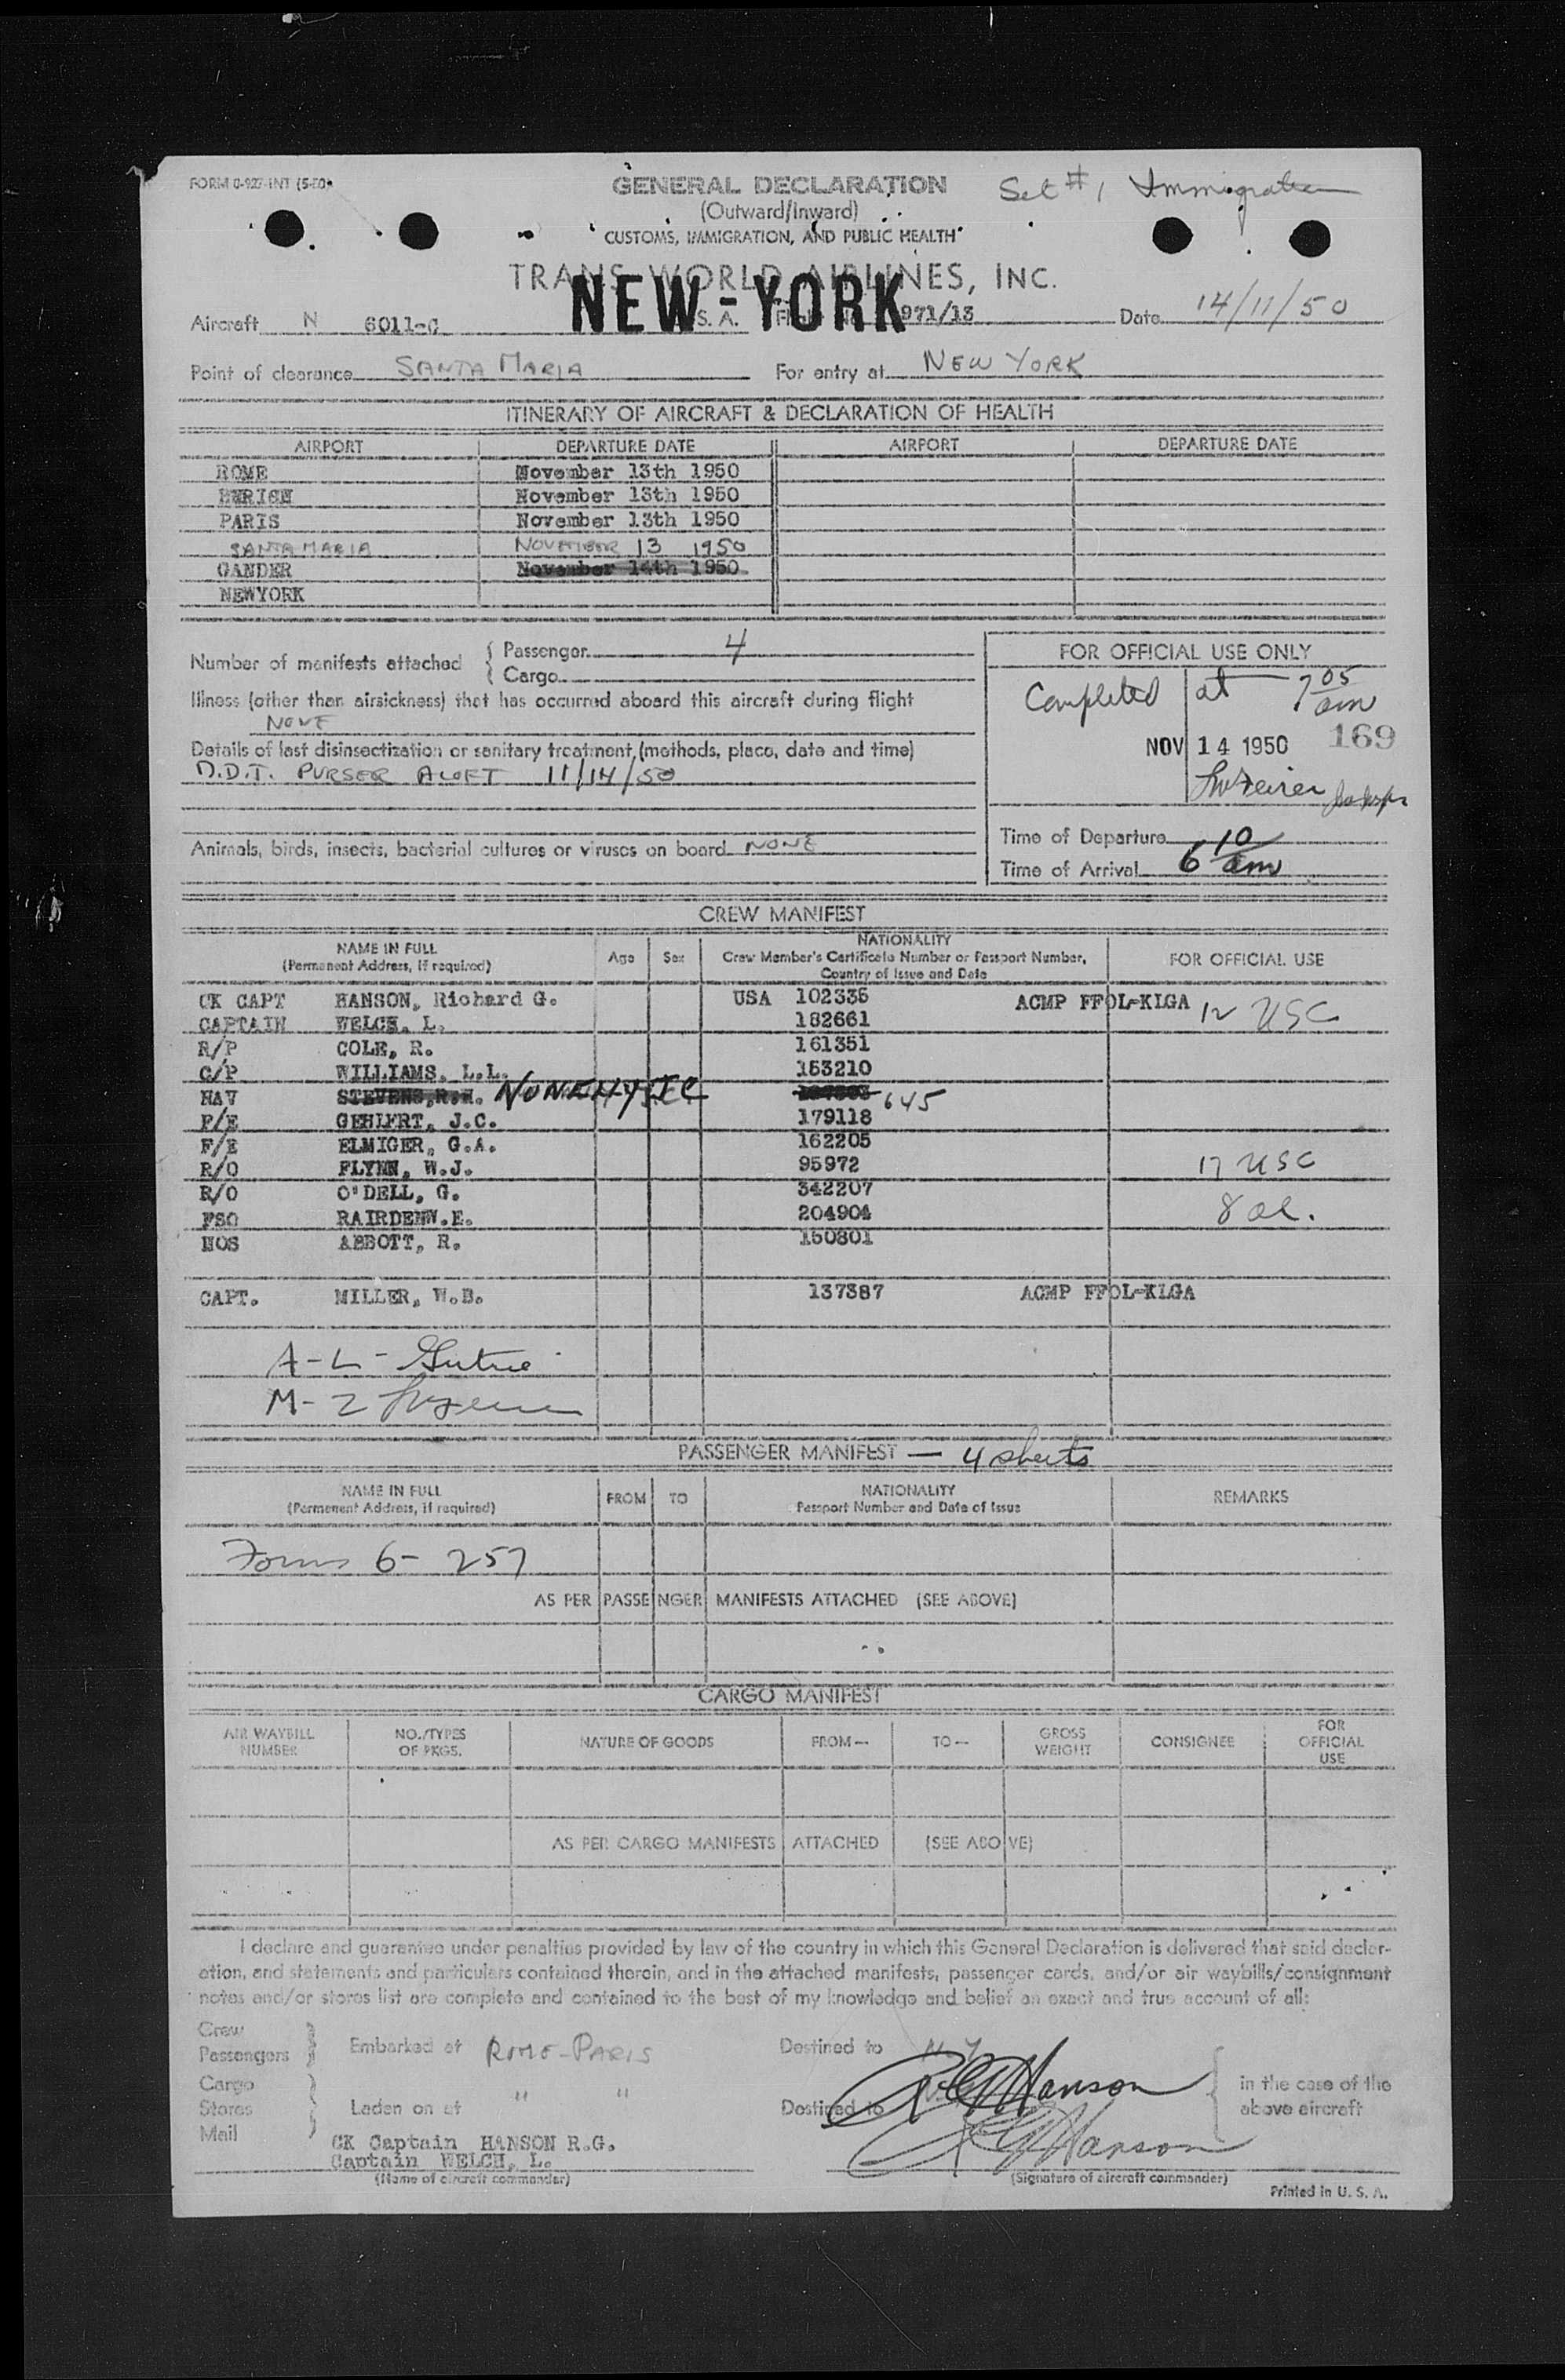 FORM 0-927-INT (5-50)
GENERAL DECLARATION
Set #1 Immigration
(Outward/Inward)
CUSTOMS, IMMIGRATION, AND PUBLIC HEALTH
TRANS WORLD AIRLINES, INC.
NEW-YORK
Aircraft N 6011-C S. A. 971/13 Date 14/11/50
Point of clearance SANTA MARIA For entry at NEW YORK
ITINERARY OF AIRCRAFT & DECLARATION OF HEALTH
AIRPORT DEPARTURE DATE AIRPORT DEPARTURE DATE
ROME November 13th 1950
November 13th 1950
PARIS November 13th 1950
SANTA MARIA NOVEMBER 13 1950
GANDER November 14th 1950
NEWYORK
Number of manifests attached { Passenger 4
Cargo
FOR OFFICIAL USE ONLY
Illness (other than airsickness) that has occurred aboard this aircraft during flight
NONE
Completed at 7 05 am
NOV 14 1950 169
Details of last disinsectization or sanitary treatment (methods, place, date and time)
D.D.T. PURSER ALOFT 11/14/50
Animals, birds, insects, bacterial cultures or viruses on board NONE
Time of Departure
Time of Arrival 6 10 am
CREW MANIFEST
NAME IN FULL
(Permanent Address, if required)
Age Sex
NATIONALITY
Crew Member's Certificate Number or Passport Number,
Country of Issue and Date
FOR OFFICIAL USE
CK CAPT HANSON, Richard G. USA 102335 ACMP FFOL-KLGA 12 USC
CAPTAIN WELCH. L. 182661
R/P COLE, R. 161351
C/P WILLIAMS. L.L. 153210
NAV STEVENS, R.H. 645
F/E GEHLERT, J.C. 179118
F/E ELMIGER, G.A. 162205
R/O FLYNN, W.J. 95972 17 USC
R/O O'DELL, G. 342207
FSO RAIRDENW.E. 204904 8 al.
HOS ABBOTT, R. 150801
CAPT. MILLER, W.B. 137387 ACMP FFOL-KLGA
A-L-
M-2
PASSENGER MANIFEST — 4 sheets
NAME IN FULL
(Permanent Address, if required)
FROM TO
NATIONALITY
Passport Number and Date of Issue
REMARKS
Forms 6- 257
AS PER PASSENGER MANIFESTS ATTACHED (SEE ABOVE)
CARGO MANIFEST
AIR WAYBILL NUMBER
NO./TYPES OF PKGS.
NATURE OF GOODS
FROM—
TO—
GROSS WEIGHT
CONSIGNEE
FOR OFFICIAL USE
AS PER CARGO MANIFESTS ATTACHED (SEE ABOVE)
I declare and guarantee under penalties provided by law of the country in which this General Declaration is delivered that said declar-
ation, and statements and particulars contained therein, and in the attached manifests, passenger cards, and/or air waybills/consignment
notes and/or stores list are complete and contained to the best of my knowledge and belief an exact and true account of all:
Crew
Passengers } Embarked at ROME-PARIS Destined to N.Y.
Cargo
Stores } Laden on at " " Destined to
Mail
in the case of the
above aircraft
RG Hanson
RG Hanson
CK Captain HANSON R.G.
Captain WELCH, L.
(Name of aircraft commander)
(Signature of aircraft commander)
Printed in U. S. A.